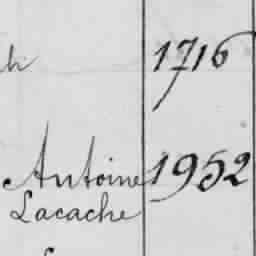 h 1716
Antoine 1952
Lacache